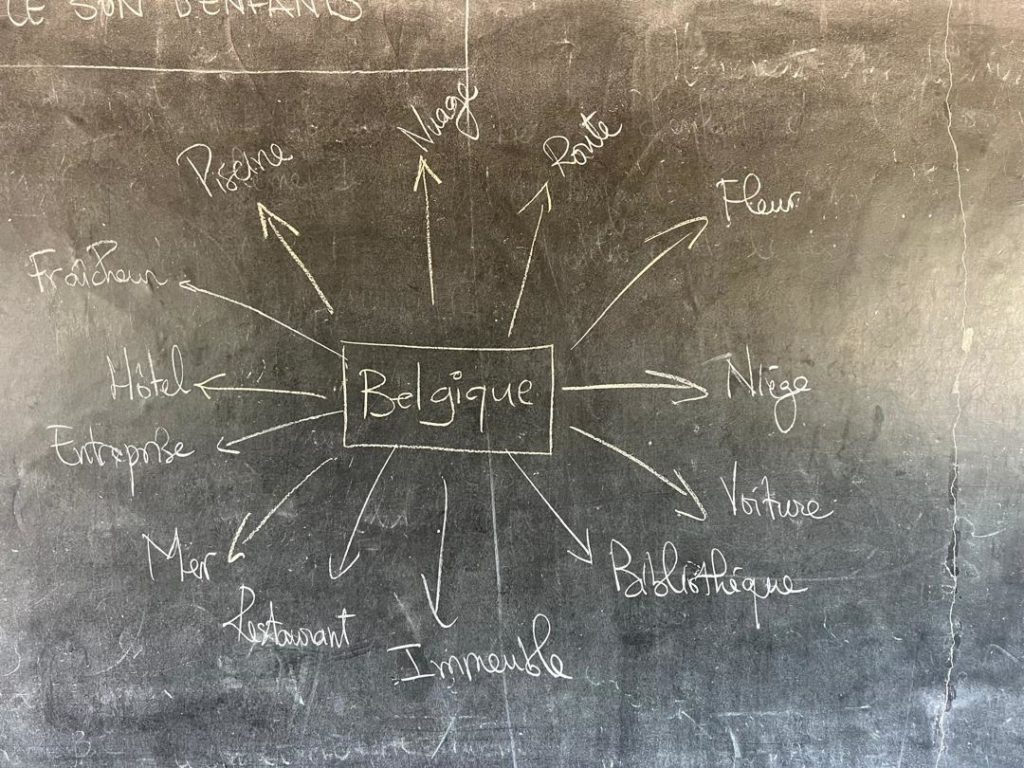 LE SON D'ENFANTS
Nuage
Route
Piscine
Fleur
Fraîcheur
Hôtel
Belgique
Niége
Entreprise
Voiture
Mer
Bibliothéque
Restaurant
Immeuble